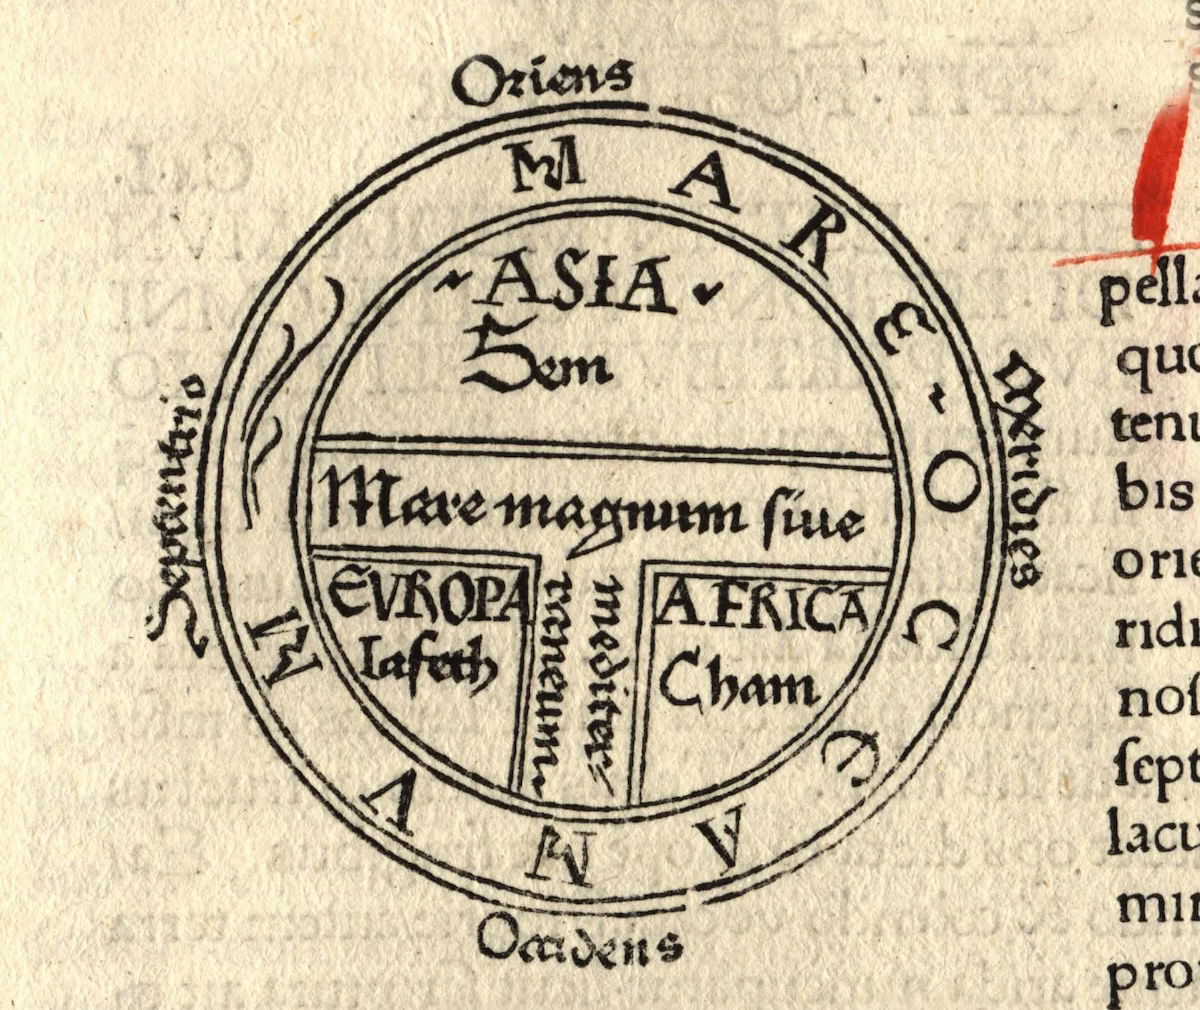 Oriens
MARE ~ OCEANVM
ASIA
Sem
Meridies
Septentrio
Mare magnum ſiue
mediter
raneum
EVROPA
Iafeth
AFRICA
Cham
Occidens
pell
quo
tenu
bis
orie
ridi
noſ
ſept
lacu
min
pro